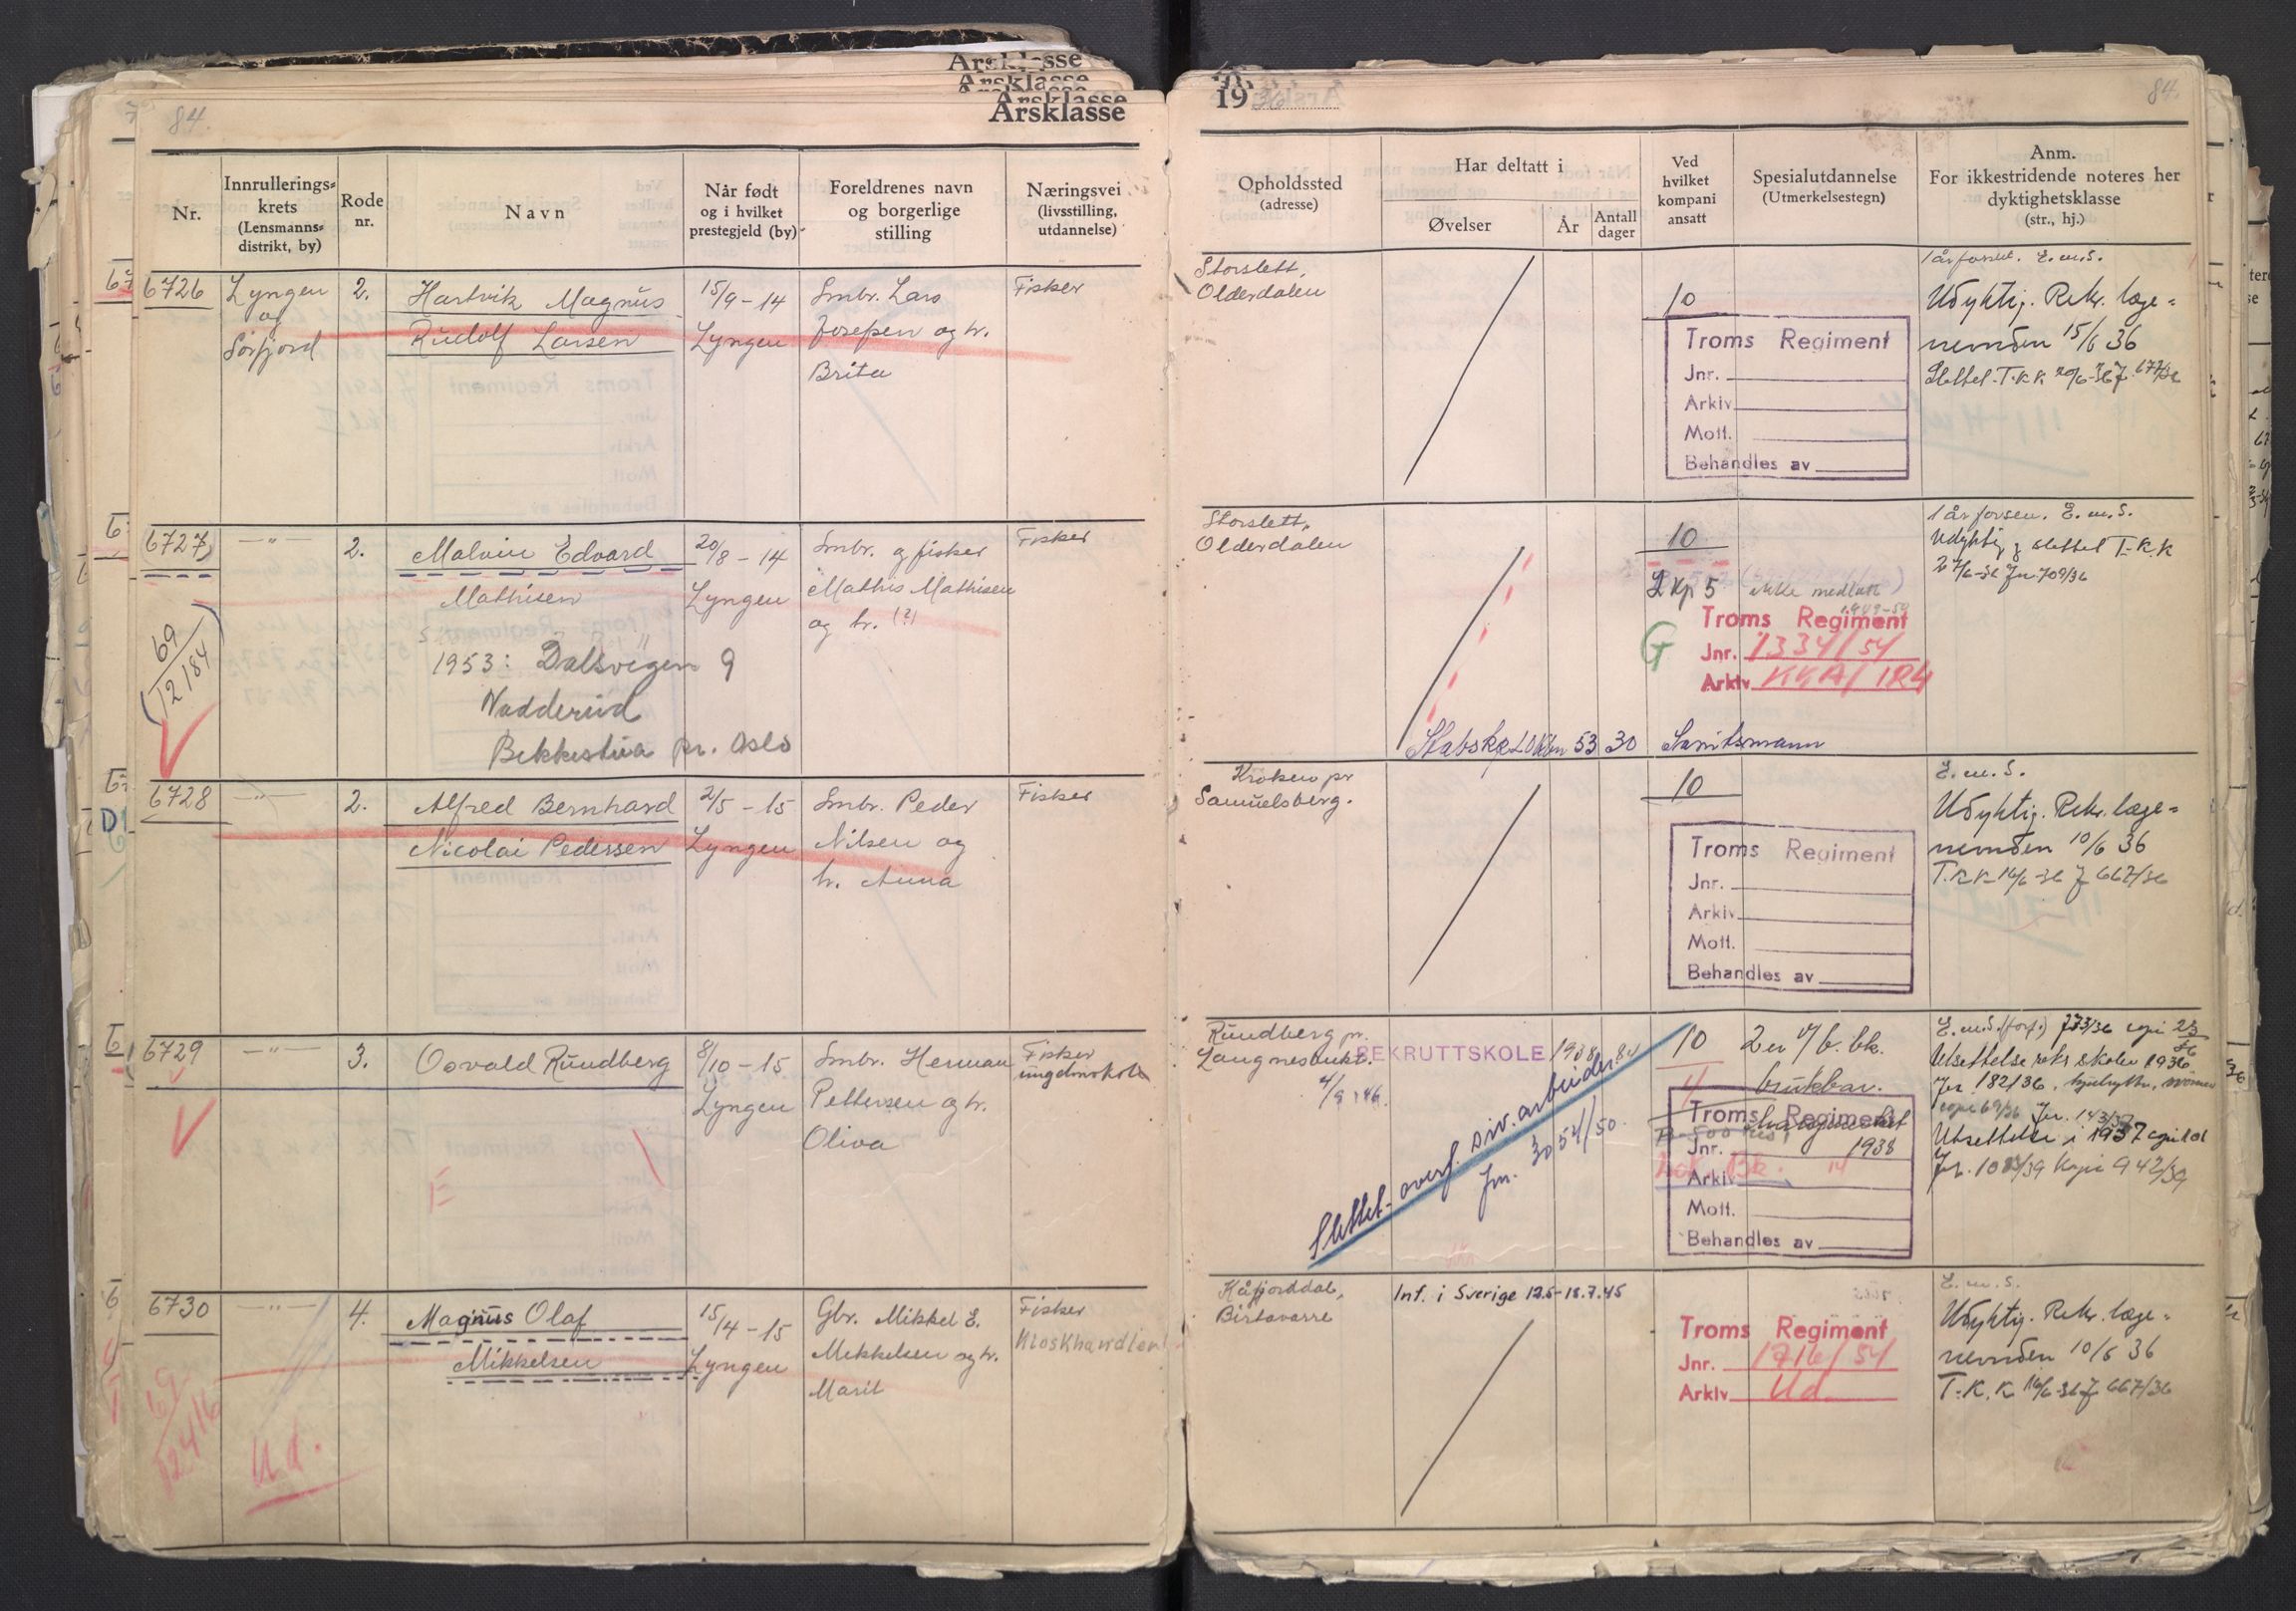 84.
Årsklasse
Nr.
Innrullerings-
krets
(Lensmanns-
distrikt, by)
Rode
nr.
Navn
Når født
og i hvilket
prestegjeld (by)
Foreldrenes navn
og borgerlige
stilling
Næringsvei
(livsstilling,
utdannelse)
6726
Lyngen
og
Sørfjord
2.
Hartvik Magnus
Rudolf Larsen
15/9-14
Lyngen
Smbr. Lars
Josefsen og h.
Brita
Fisker
6727
—"—
2.
Malvin Edvard
Mathisen
1953: Dalsvegen 9
Nadderud
Bekkestua pr. Oslo
20/8-14
Lyngen
Smbr. og fisker
Mathis Mathisen
og h. (?)
Fisker
69
12184
6728
—"—
2.
Alfred Bernhard
Nicolai Pedersen
2/5-15
Lyngen
Smbr. Peder
Nilsen og
h. Anna
Fisker
6729
—"—
3.
Osvald Rundberg
8/10-15
Lyngen
Smbr. Herman
Pettersen og h.
Oliva
Fisker
ungdomskole
E
6730
—"—
4.
Magnus Olaf
Mikkelsen
15/4-15
Lyngen
Gbr. Mikkel E.
Mikkelsen og h.
Marit
Fisker
Kioskhandler
69
12416
Ud.
1936
84.
Opholdssted
(adresse)
Har deltatt i
Øvelser
År
Antall
dager
Ved
hvilket
kompani
ansatt
Spesialutdannelse
(Utmerkelsestegn)
Anm.
For ikkestridende noteres her
dyktighetsklasse
(str., hj.)
Storslett,
Olderdalen
10
Troms Regiment
Jnr.
Arkiv
Mott.
Behandles av
E.m.S.
Udyktig. Rekr. læge-
nemnden 15/6 36
Slettet T.K.K. 20/6-36 J. 677/36
Storslett,
Olderdalen
10
Kp 5
ikke medtatt
1949-50
G
Troms Regiment
Jnr. 1334/54
Arkiv KKA/IR4
53 30 Sanitsmann
1 år forsen. E.m.S.
Udyktig, slettet T.K.K
27/6-36 Jnr. 709/36
Kroken pr
Samuelsberg.
10
Troms Regiment
Jnr.
Arkiv
Mott.
Behandles av
E.m.S.
Udyktig. Rekr. læge-
nemnden 10/6 36
T.K.K 16/6-36 J 667/36
Rundberg pr.
Langnesbukt.
REKRUTTSKOLE 1938 84
Slettet overf. siv. arbeider.
Jnr. 3054/50
10
brukbar.
1938
Troms Regiment
Jnr.
Arkiv
Mott.
Behandles av
Utsettelse rekr skolen 1936
Jnr 182/36.
Jnr. 143/37
Utsettelse i 1937
Jnr. 1083/39 Kopi 942/39
Kåfjorddal,
Birtavarre
Int. i Sverige 12.5-18.7.45
Troms Regiment
Jnr. 1716/54
Arkiv Ud.
E.m.S.
Udyktig. Rekr. læge-
nemnden 10/6 36
T.K.K 16/6-36 J 667/36